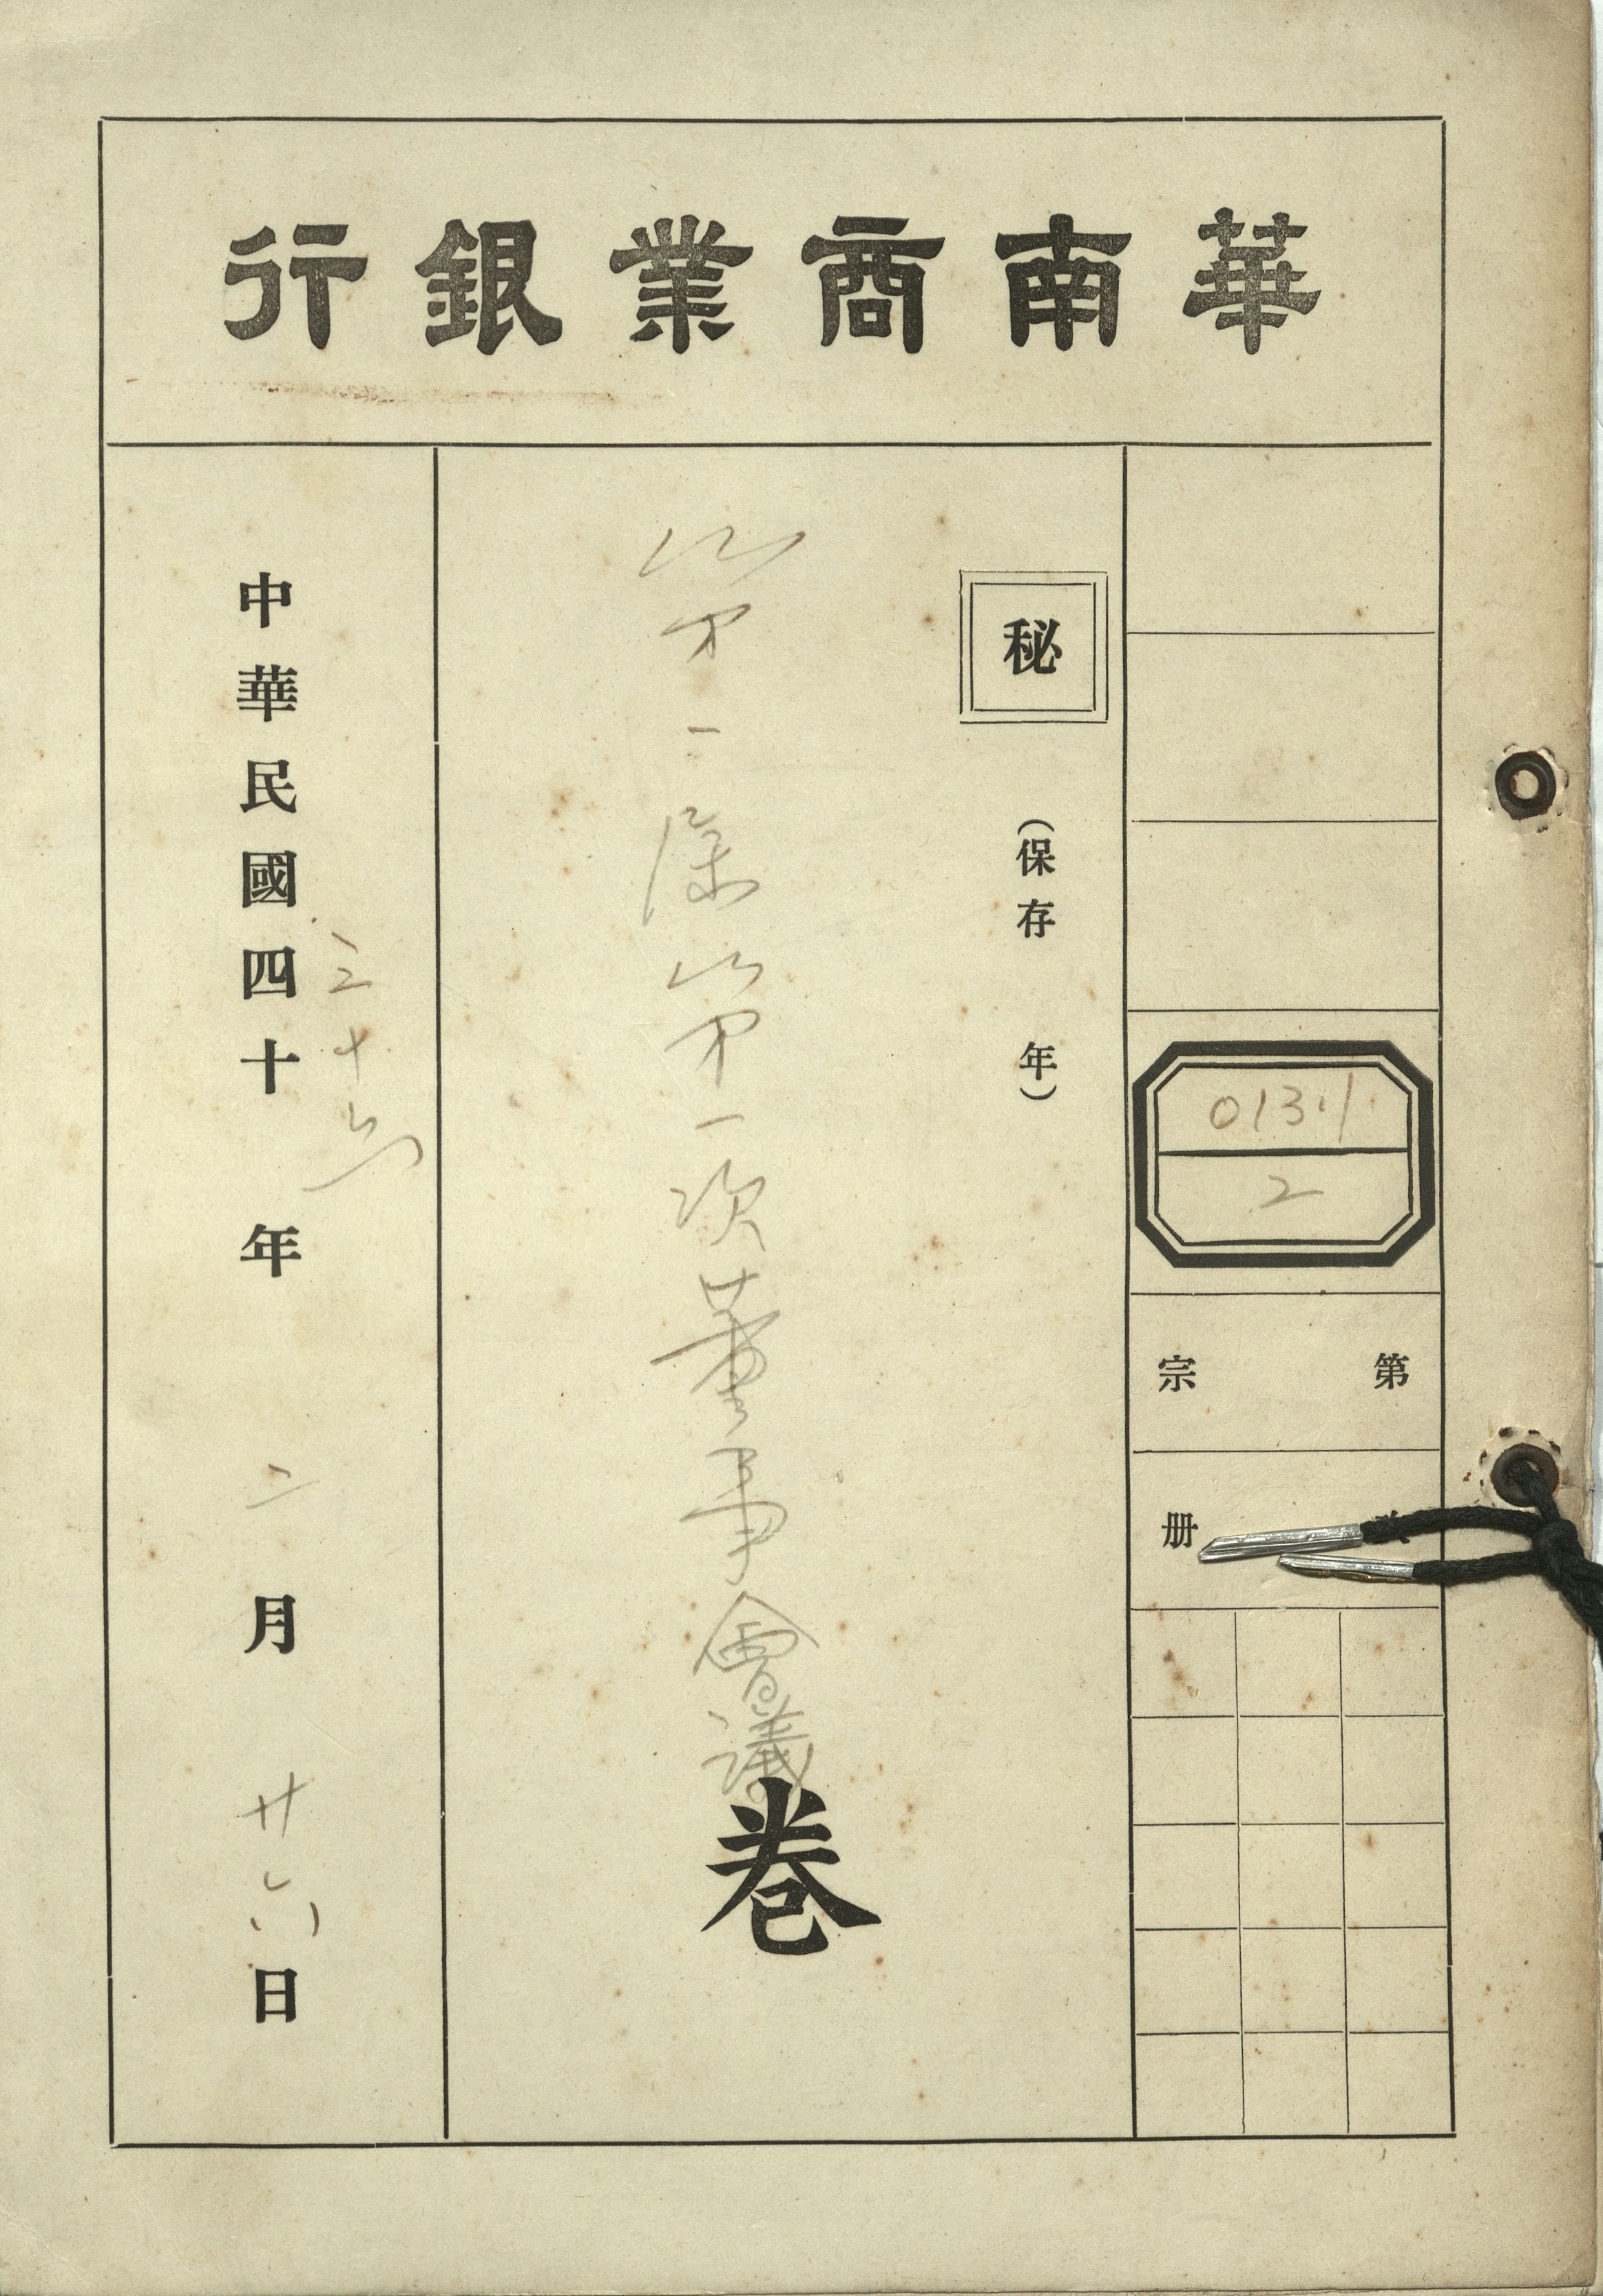 華南商業銀行
0131
2
第 宗
册
秘
(保存 年)
第一屆第一次董事會議卷
三十六
中華民國四十 年 二月廿六日